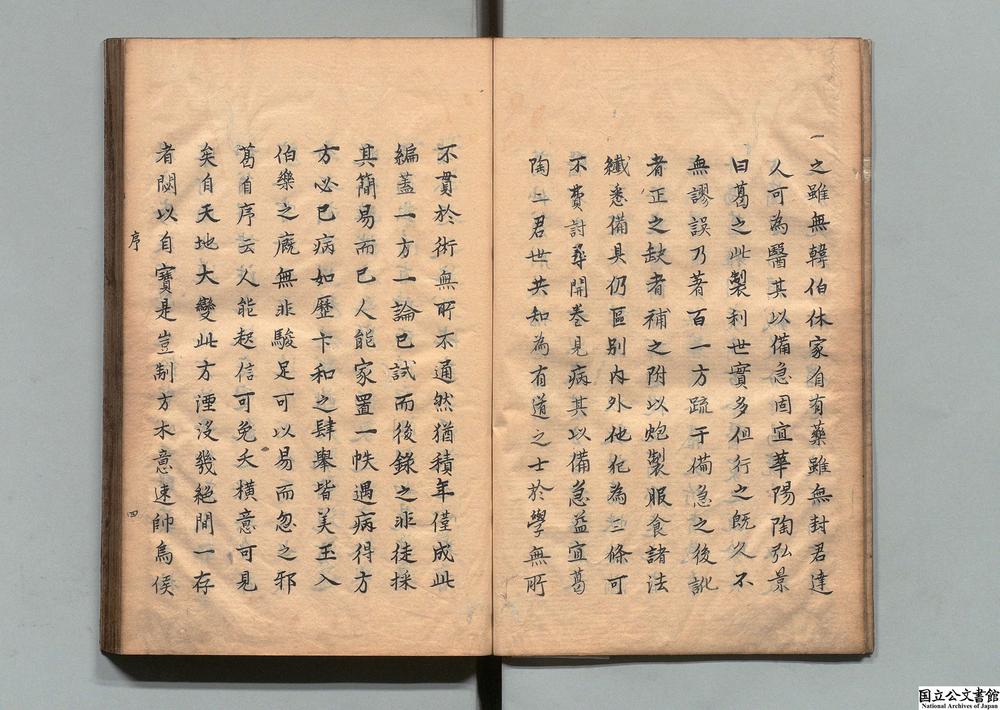 一
之雖無韓伯休家自有藥雖無封君達
人可為醫其以備急固宜華陽陶弘景
曰葛之此製利世實多但行之既久不
無謬誤乃著百一方疏于備急之後訛
者正之缺者補之附以炮製服食諸法
纖悉備具仍區别内外他犯為三條可
不費討尋開卷見病其以備急益宜葛
陶二君世共知為有道之士於學無所
不貫於術無所不通然猶積年僅成此
編蓋一方一論已試而後錄之非徒採
其簡易而已人能家置一帙遇病得方
方必已病如歷卞和之肆舉皆美玉入
伯樂之廐無非駿足可以易而忽之邪
葛自序云人能起信可免夭橫意可見
矣自天地大變此方湮沒幾絕間一存
者閟以自寶是豈制方本意連帥烏侯
序
四
国立公文書館
National Archives of Japan